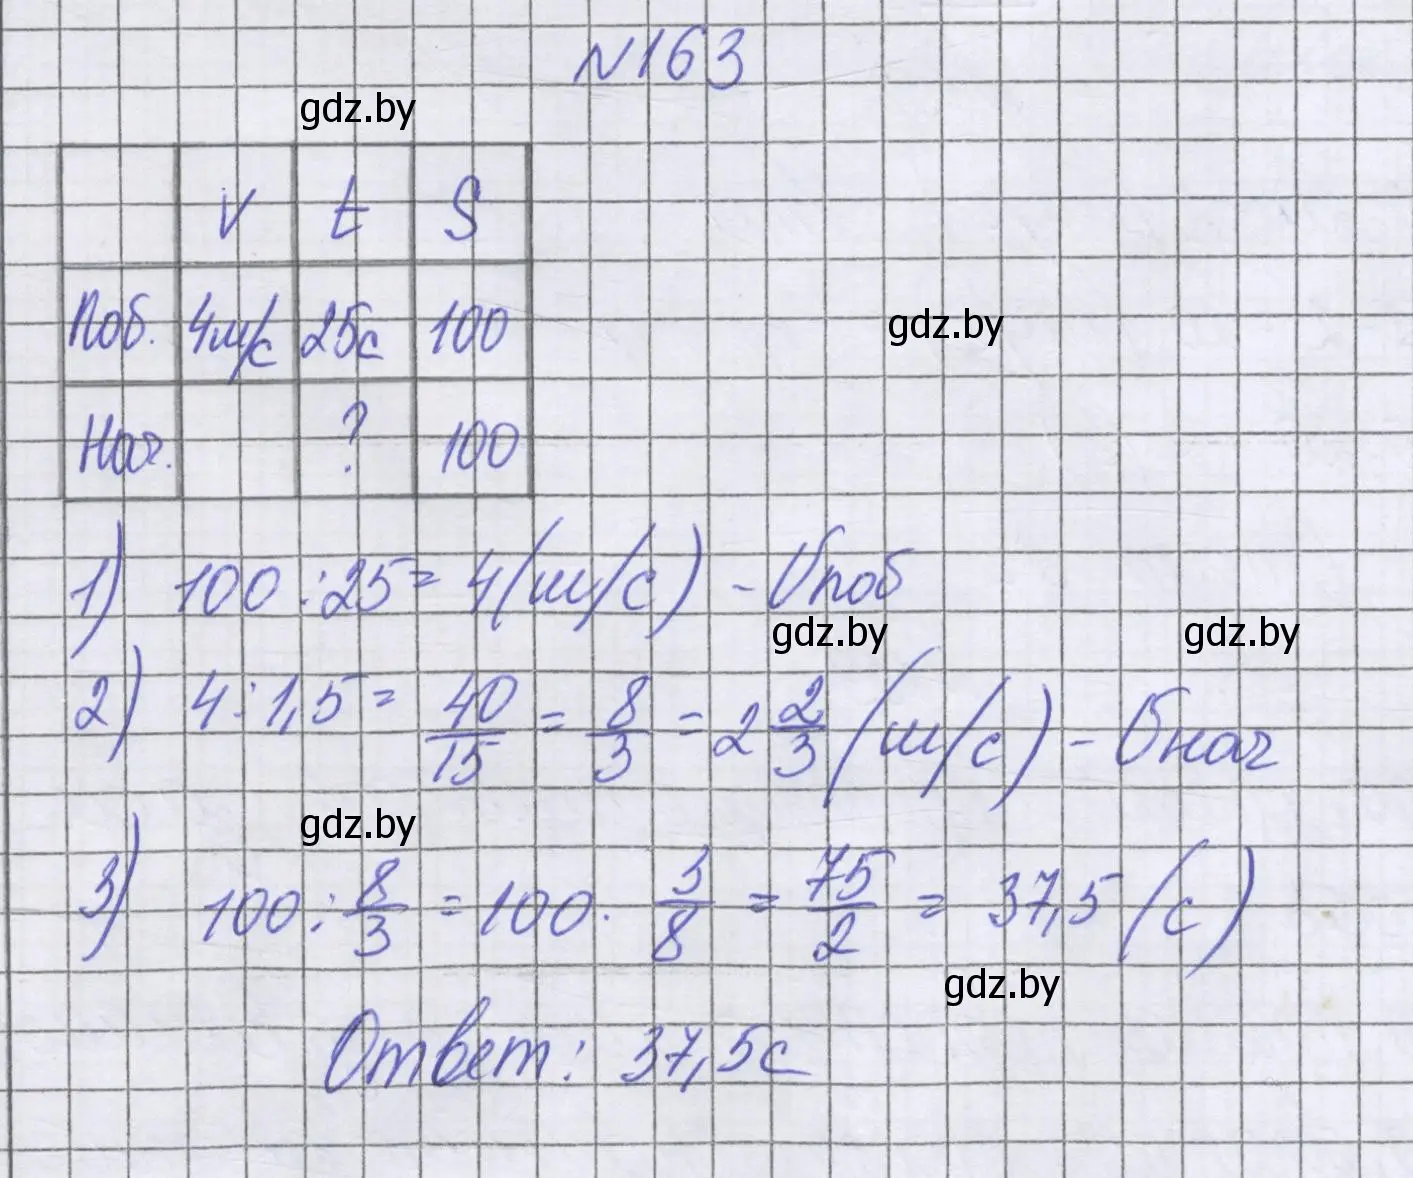 №163
gdz.by
V t S
Поб. 4м/с 25с 100
gdz.by
Нач. ? 100
1) 100 : 25 = 4 (м/с) - Vпоб
gdz.by gdz.by
2) 4 : 1,5 = 40/15 = 8/3 = 2 2/3 (м/с) - Vнач
gdz.by
3) 100 : 8/3 = 100 · 3/8 = 75/2 = 37,5 (с)
gdz.by
Ответ: 37,5с